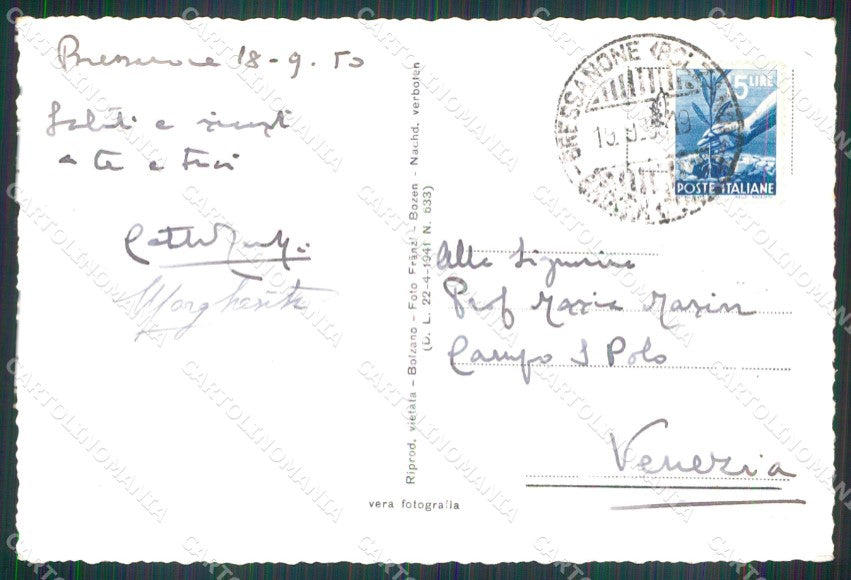 Bressanone 18-9.50
Saluti e
a te e tuoi
Margherita
Riprod. vietata - Bolzano - Foto Fränzl - Bozen - Nachd. verboten
(D. L. 22-4-1941 N. 633)
vera fotografia
BRESSANONE (BOLZ
5 LIRE
POSTE ITALIANE
Alla Signorina
Prof Maria Marin
Campo S Polo
Venezia
CARTOLINOMANIA